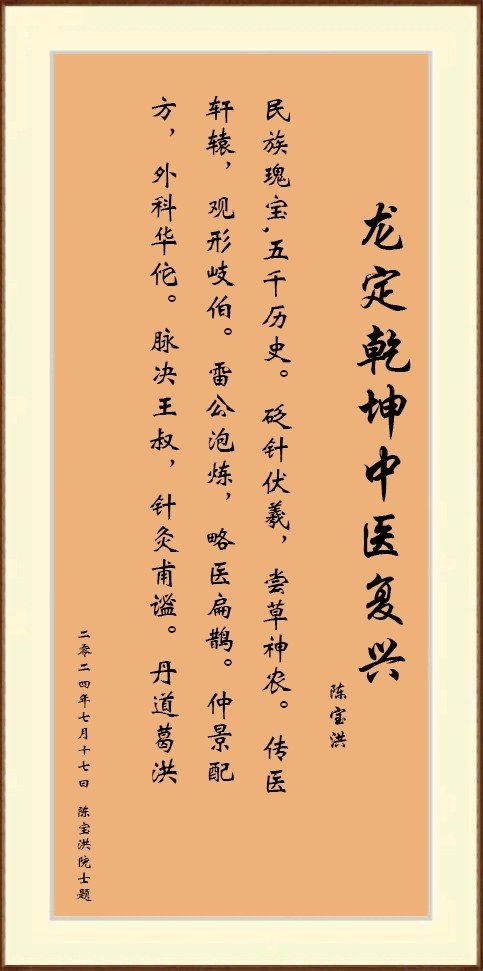 龙定乾坤中医复兴
陈宝洪
民族瑰宝,五千历史。砭针伏羲，尝草神农。传医
轩辕，观形岐伯。雷公泡炼，略医扁鹊。仲景配
方，外科华佗。脉决王叔，针灸甫谧。丹道葛洪
二零二四年七月十七日 陈宝洪院士题